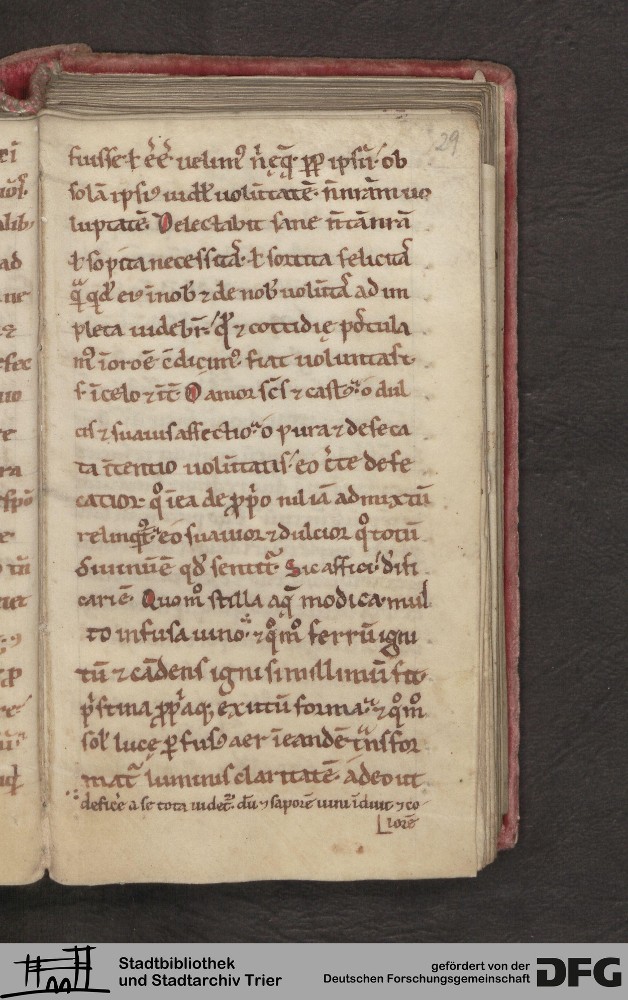 29
fuisse ł ēē uelim᷒ n̄ęq̄ ꝓꝑ ipsū· ob
solā ipsi᷒ uidl᷒ uolūtatē· n̄ nrām uo
luptatē· Delectabit sane n̄ tā nrā
ł sopita necessitas· ł sortita felicitas
qd ei᷒ in nob̄ ⁊ de nob̄ uolūtas ad im
pleta uidebit᷒· qd ⁊ cottidię postula
m᷒ ī oroē cū dicim᷒· fiat uoluntas t·
s· ī celo ⁊ ī t̄· O amor scs ⁊ cast᷒· o dul
cis ⁊ suauis affectio· o pura ⁊ defeca
ta ītentio uolūtatis· eo c̄te defe
catior· qo ī ea de ꝓprio nil iā admixtū
relinquit᷒· eo suauior ⁊ dulcior qo totū
diuinū ē qd sentit᷒· Sic affici· deifi
cari ē· Quom̊ stilla aq̄ modica mul
to infusa uino· ⁊ qm̊ ferrū igni
tū ⁊ cādens igni simillimū fit
pristina ꝓpriaq; exutū forma· ⁊ qm̊
sol᷒ lucę ꝑfus᷒ aer ī eandē tnsfor
mat᷒ luminis claritatē· adeo ut
deficere a se tota uidet᷒· dū ⁊ saporē uini īduit ⁊ co
lorē
Stadtbibliothek
und Stadtarchiv Trier
gefördert von der
Deutschen Forschungsgemeinschaft
DFG